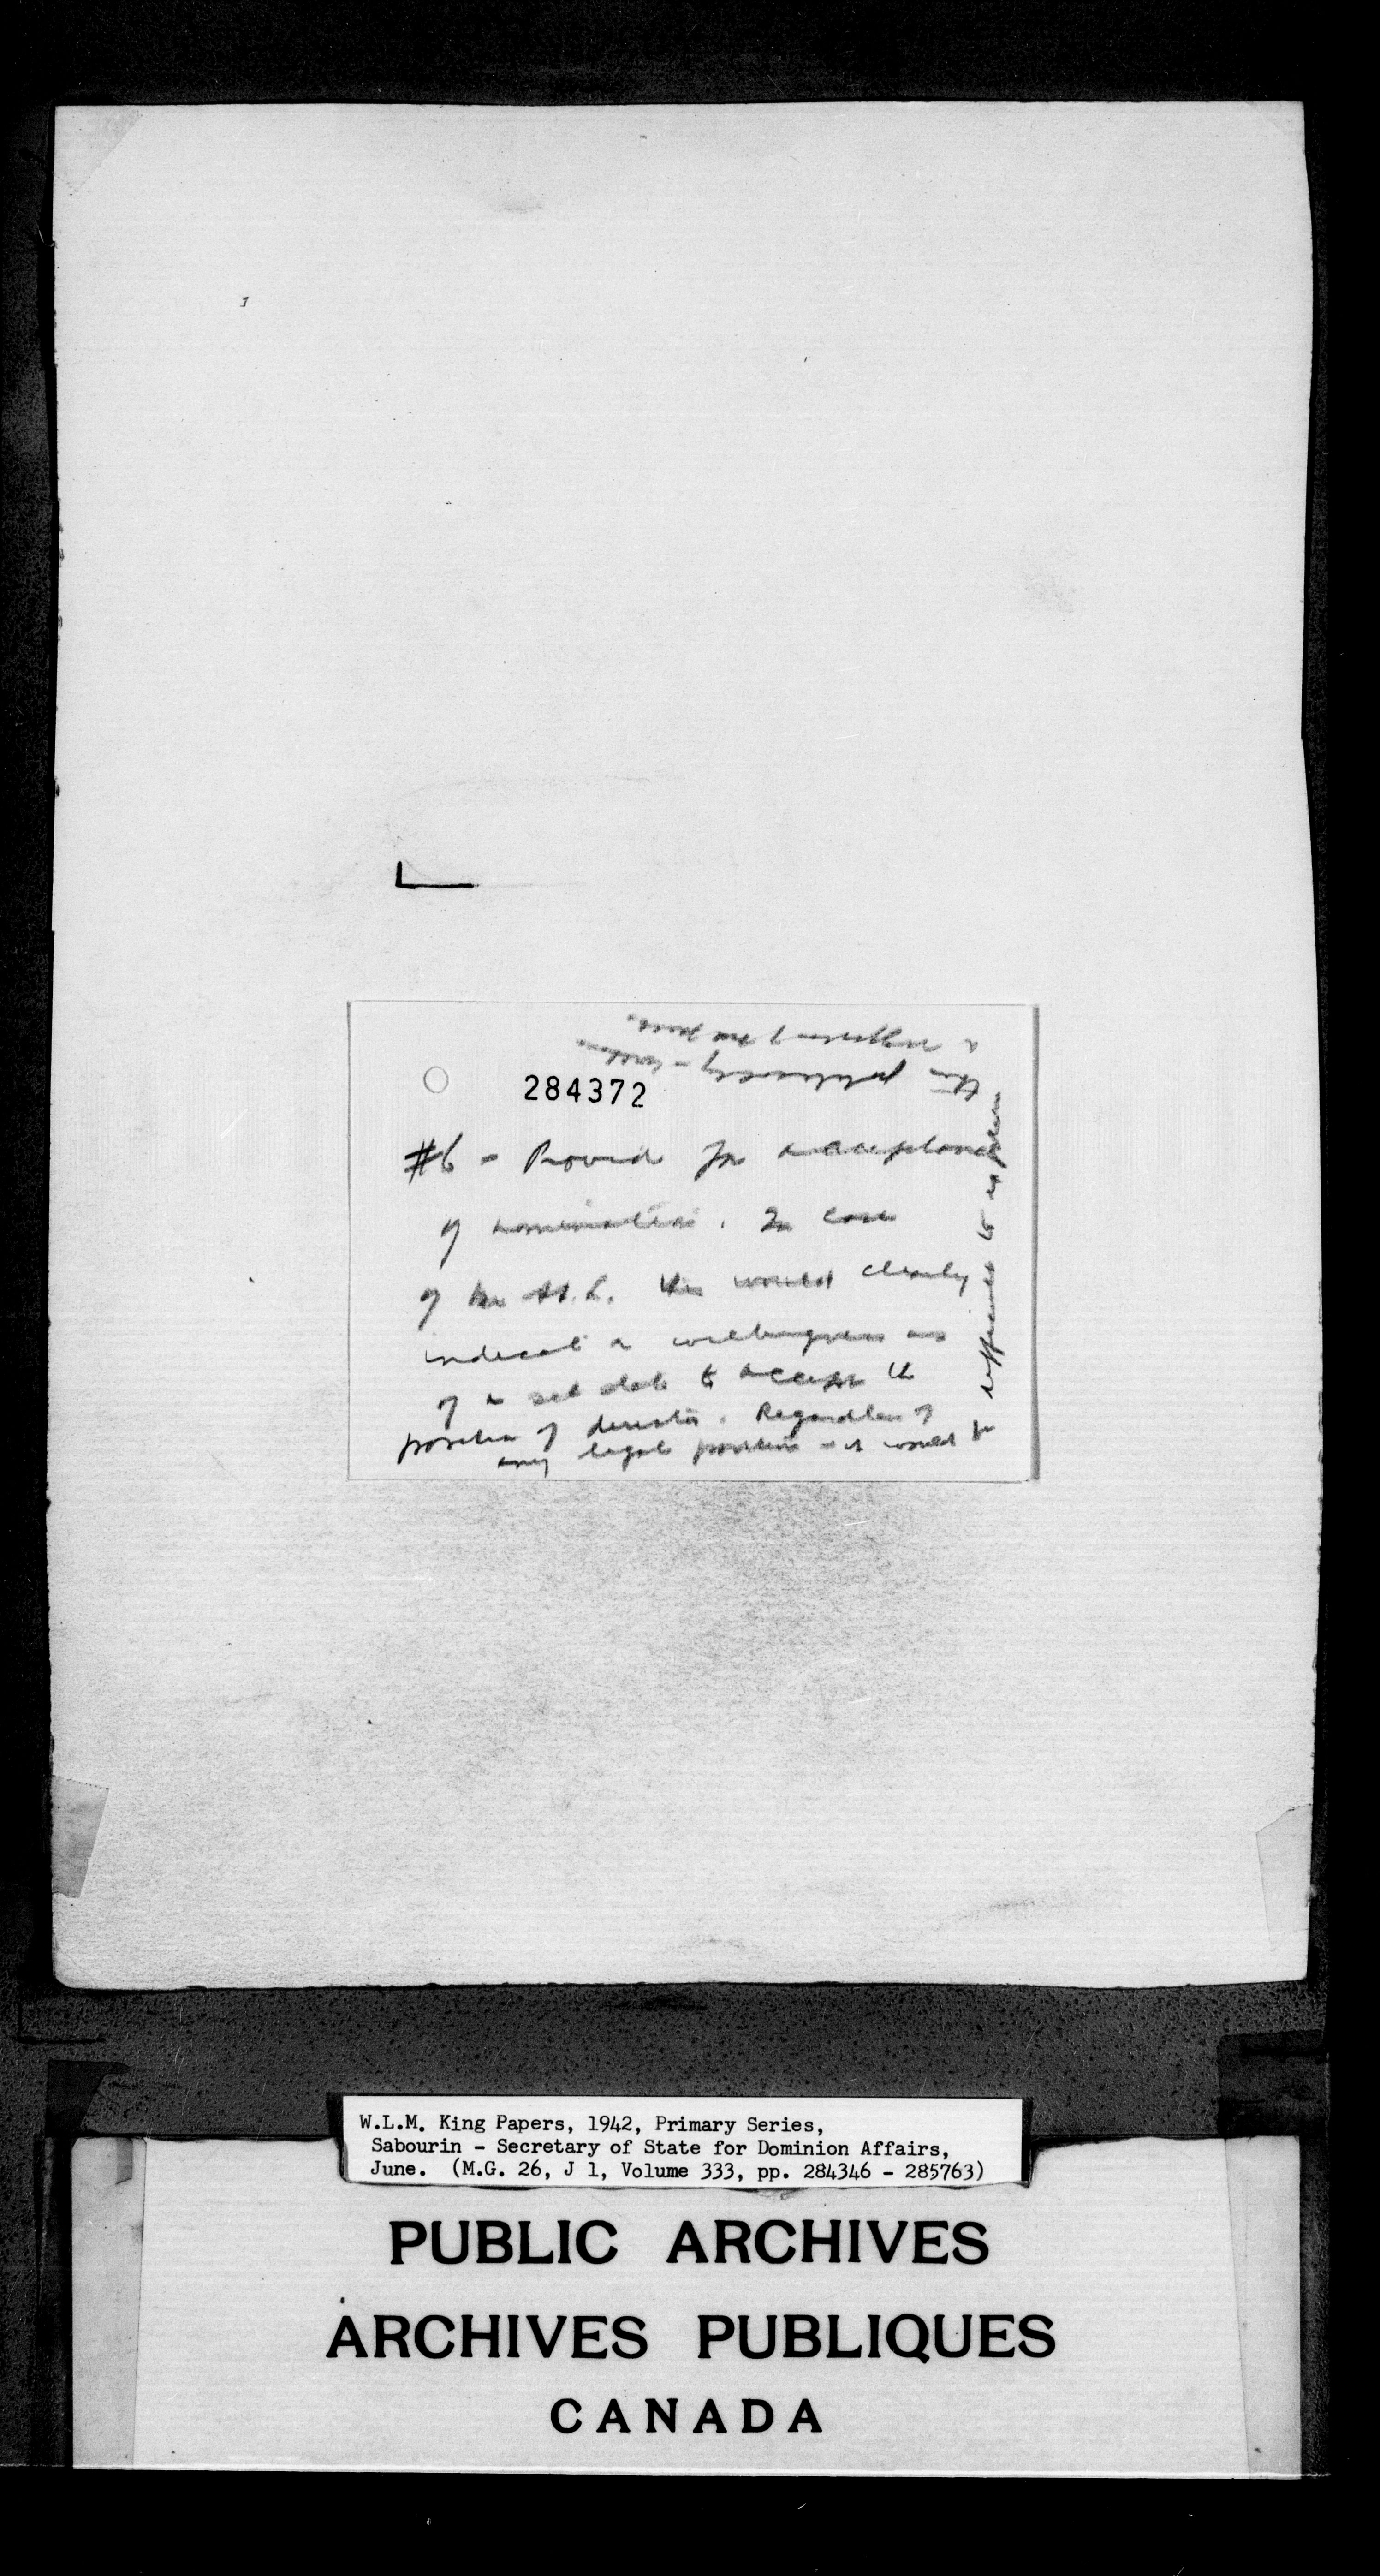 284372
#6 - Provide for acceptance
of nomination. In case
of Mr H.L. this would clearly
indicate a willingness as
of a set date to accept the
position of director. Regardless of
any legal position - it would be
difficult to explain
this publicly
W.L.M. King Papers, 1942, Primary Series,
Sabourin - Secretary of State for Dominion Affairs,
June. (M.G. 26, J 1, Volume 333, pp. 284346 - 285763)
PUBLIC ARCHIVES
ARCHIVES PUBLIQUES
CANADA